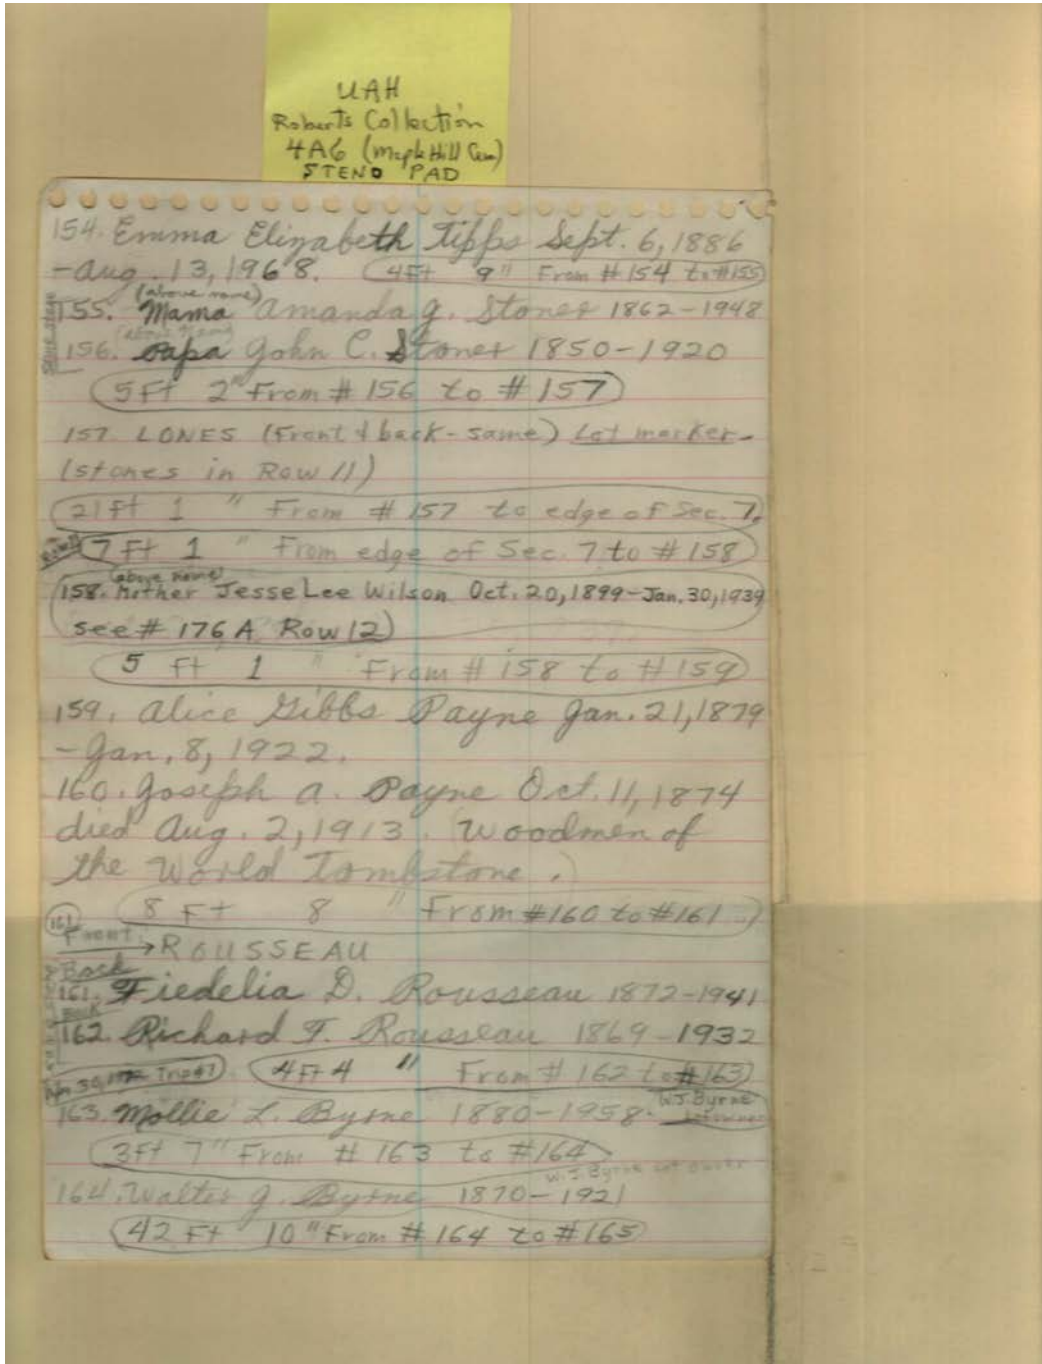 UAH
Roberts Collection
4A6 (Maple Hill Cem)
STENO PAD
154. Emma Elizabeth Tipps Sept. 6, 1886
- Aug. 13, 1968. 4 Ft 9" From #154 to #155
(above name)
155. Mama Amanda J. Stoner 1862-1948
same stone
(above name)
156. Papa John C. Stoner 1850-1920
5 Ft 2" From #156 to #157
157. LONES (Front & back - same) Lot marker.
(stones in Row 11)
21 Ft 1 " From #157 to edge of Sec. 7.
7 Ft 1 " From edge of Sec. 7 to #158
(above name)
158. Mother Jesse Lee Wilson Oct. 20, 1899-Jan. 30, 1939
see # 176 A Row 12
5 ft 1 " From #158 to #159
159. Alice Gibbs Payne Jan. 21, 1879
- Jan. 8, 1922.
160. Joseph A. Payne Oct. 11, 1874
died Aug. 2, 1913. (Woodmen of
the World Tombstone.)
8 Ft 8 " From #160 to #161
161
Front → ROUSSEAU
Back
161. Fiedelia D. Rousseau 1872-1941
Back
162. Richard F. Rousseau 1869-1932
Trip #7 4 Ft 4 " From #162 to #163
163. Mollie L. Byrne 1880-1958. W.J. Byrne
Lot owner
3 Ft 7" From #163 to #164
W.J. Byrne Lot owner
164. Walter J. Byrne 1870-1921
42 Ft 10" From #164 to #165